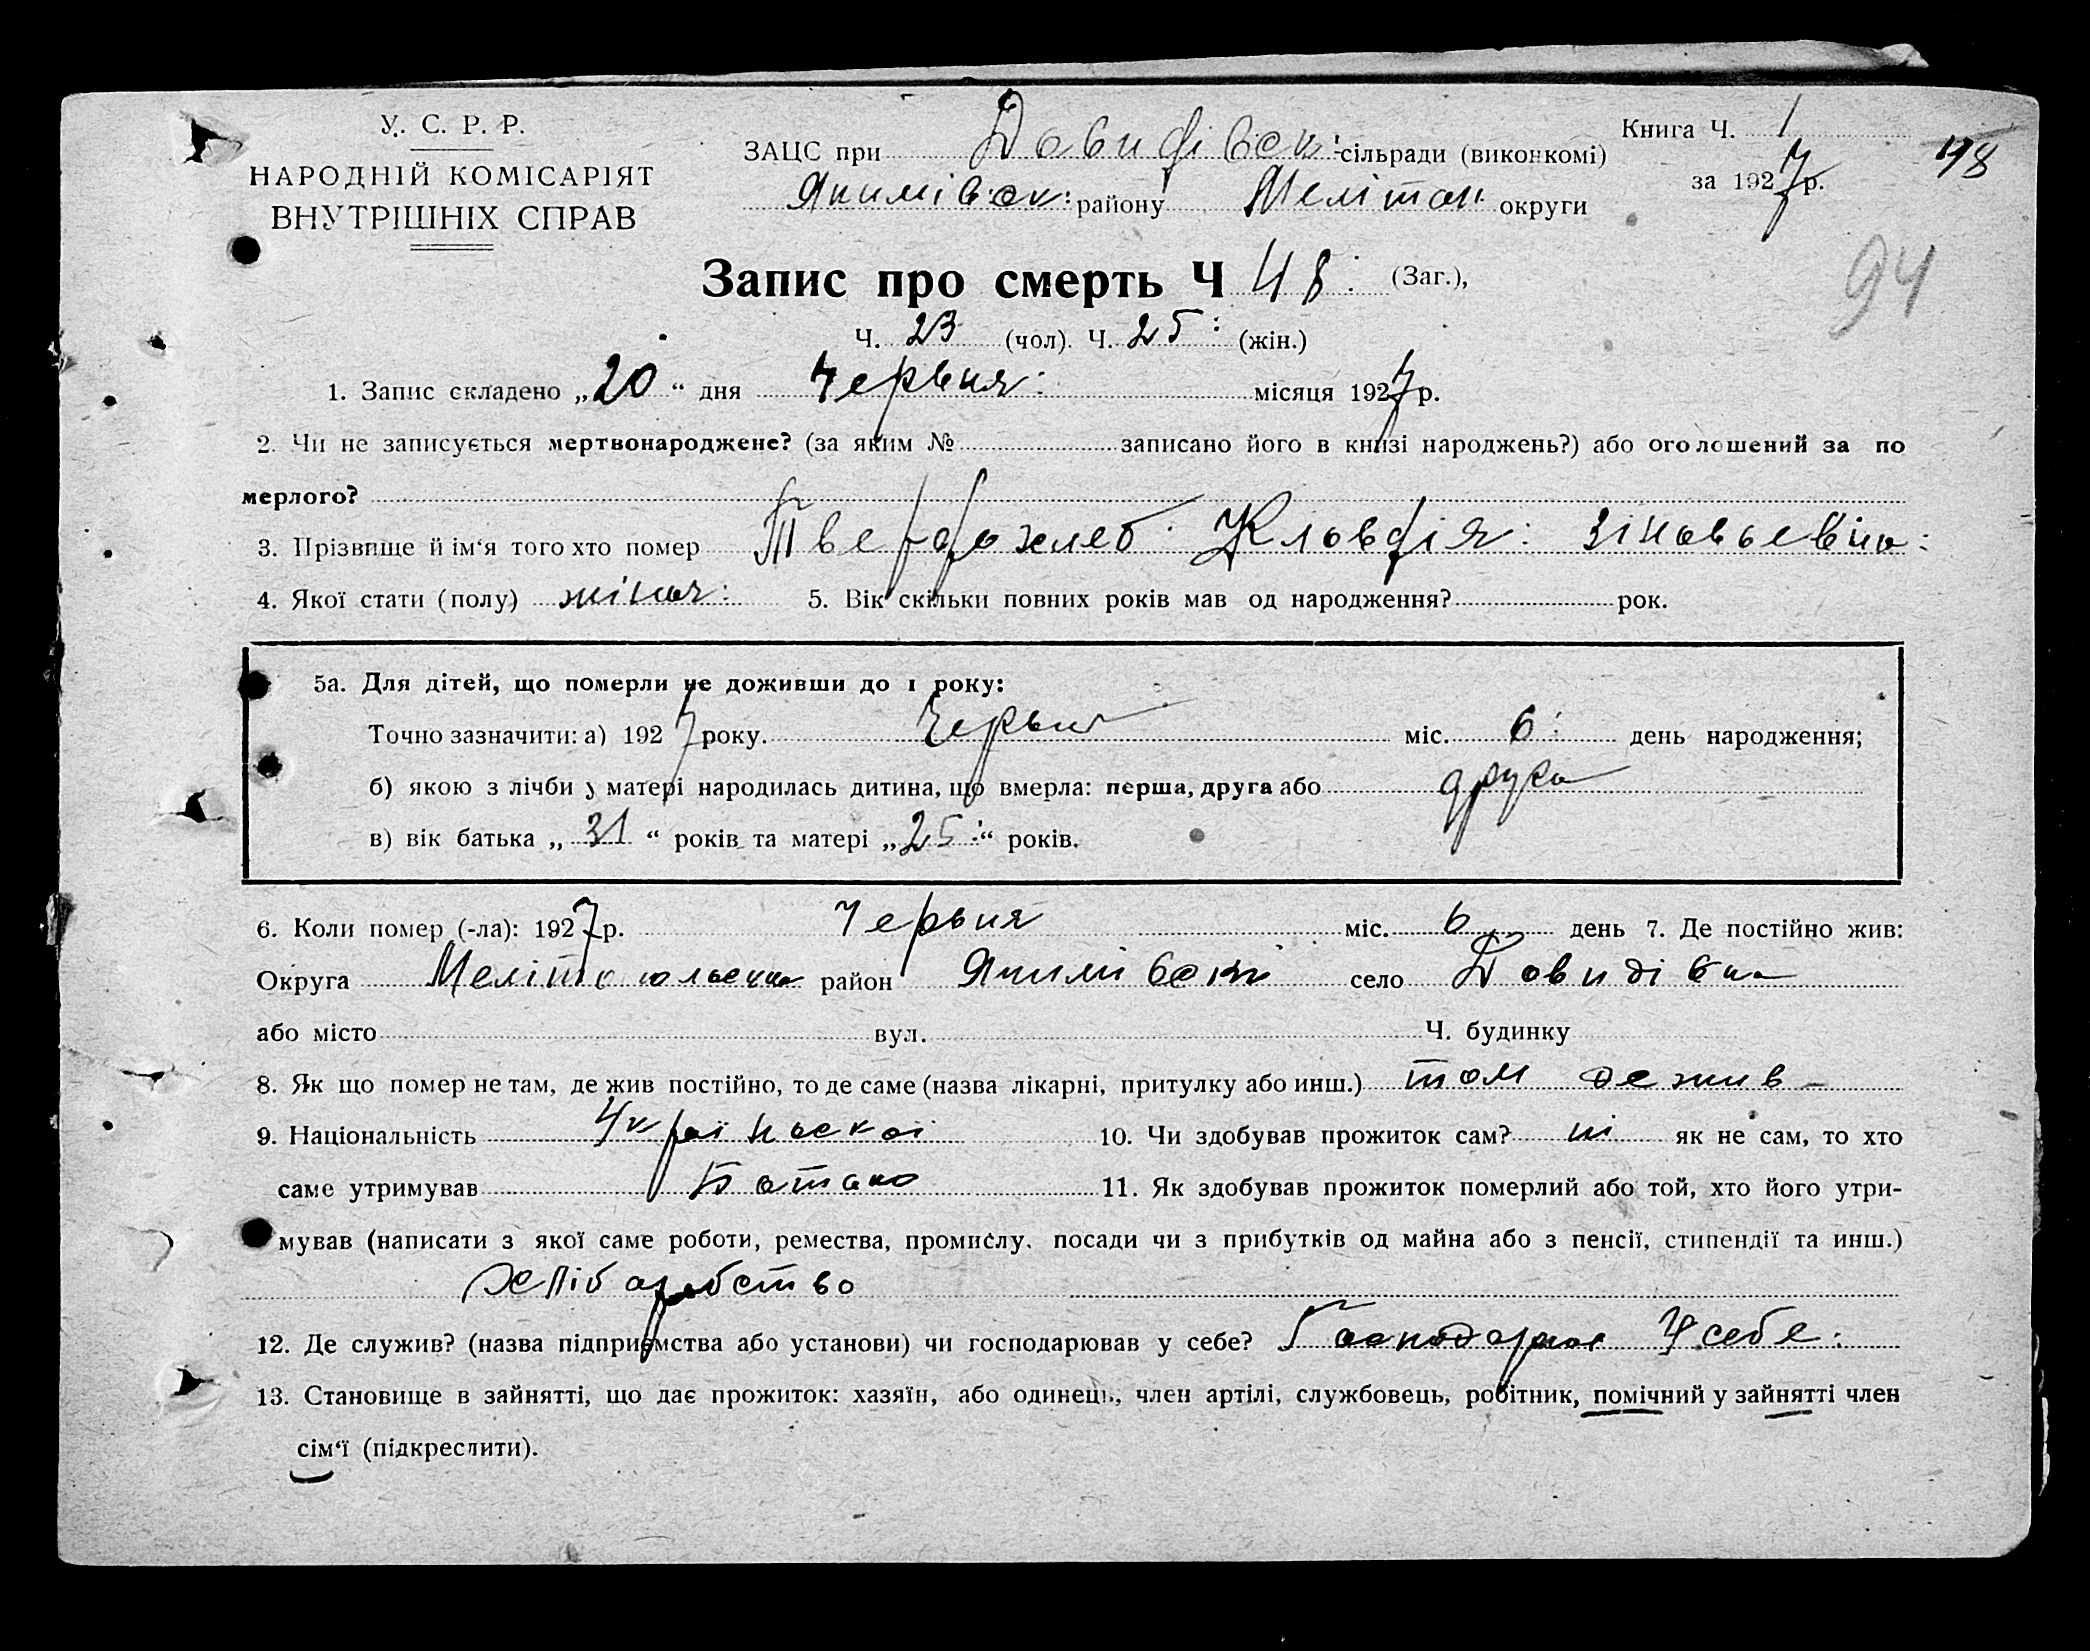 У. С. Р. Р.
НАРОДНІЙ КОМІСАРІЯТ
ВНУТРІШНІХ СПРАВ
ЗАЦС при Давидівськ: сільради (виконкомі)
Якимівськ: району Мелітоп. округи
Книга Ч. 1
за 1927 р.
48
94
Запис про смерть Ч 48: (Заг.),
Ч. 23 (чол). Ч. 25: (жін.)
1. Запис складено „20“ дня Червня: місяця 1927 р.
2. Чи не записується мертвонароджене? (за яким № записано його в книзі народжень?) або оголошений за по
мерлого?
3. Прізвище й ім‘я того хто помер Твердохлеб Клавдія: Зіновьевна:
4. Якої стати (полу) жіноч: 5. Вік скільки повних років мав од народження? рок.
5а. Для дітей, що померли не доживши до 1 року:
Точно зазначити: а) 1927 року. Червня міс. 6: день народження;
б) якою з лічби у матері народилась дитина, що вмерла: перша, друга або друга
в) вік батька „31“ років та матері „25:“ років.
6. Коли помер (-ла): 1927 р. Червня міс. 6 день 7. Де постійно жив:
Округа Мелітопольська район Якимівськ село Давидівка
або місто вул. Ч. будинку
8. Як що помер не там, де жив постійно, то де саме (назва лікарні, притулку або инш.) там де жив –
9. Національність Української 10. Чи здобував прожиток сам? ні як не сам, то хто
саме утримував Батько 11. Як здобував прожиток померлий або той, хто його утри-
мував (написати з якої саме роботи, ремества, промислу, посади чи з прибутків од майна або з пенсії, стипендії та инш.)
хліборобство
12. Де служив? (назва підприємства або установи) чи господарював у себе? Господарює У себе:
13. Становище в зайнятті, що дає прожиток: хазяїн, або одинець, член артілі, службовець, робітник, помічний у зайнятті член
сім‘ї (підкреслити).